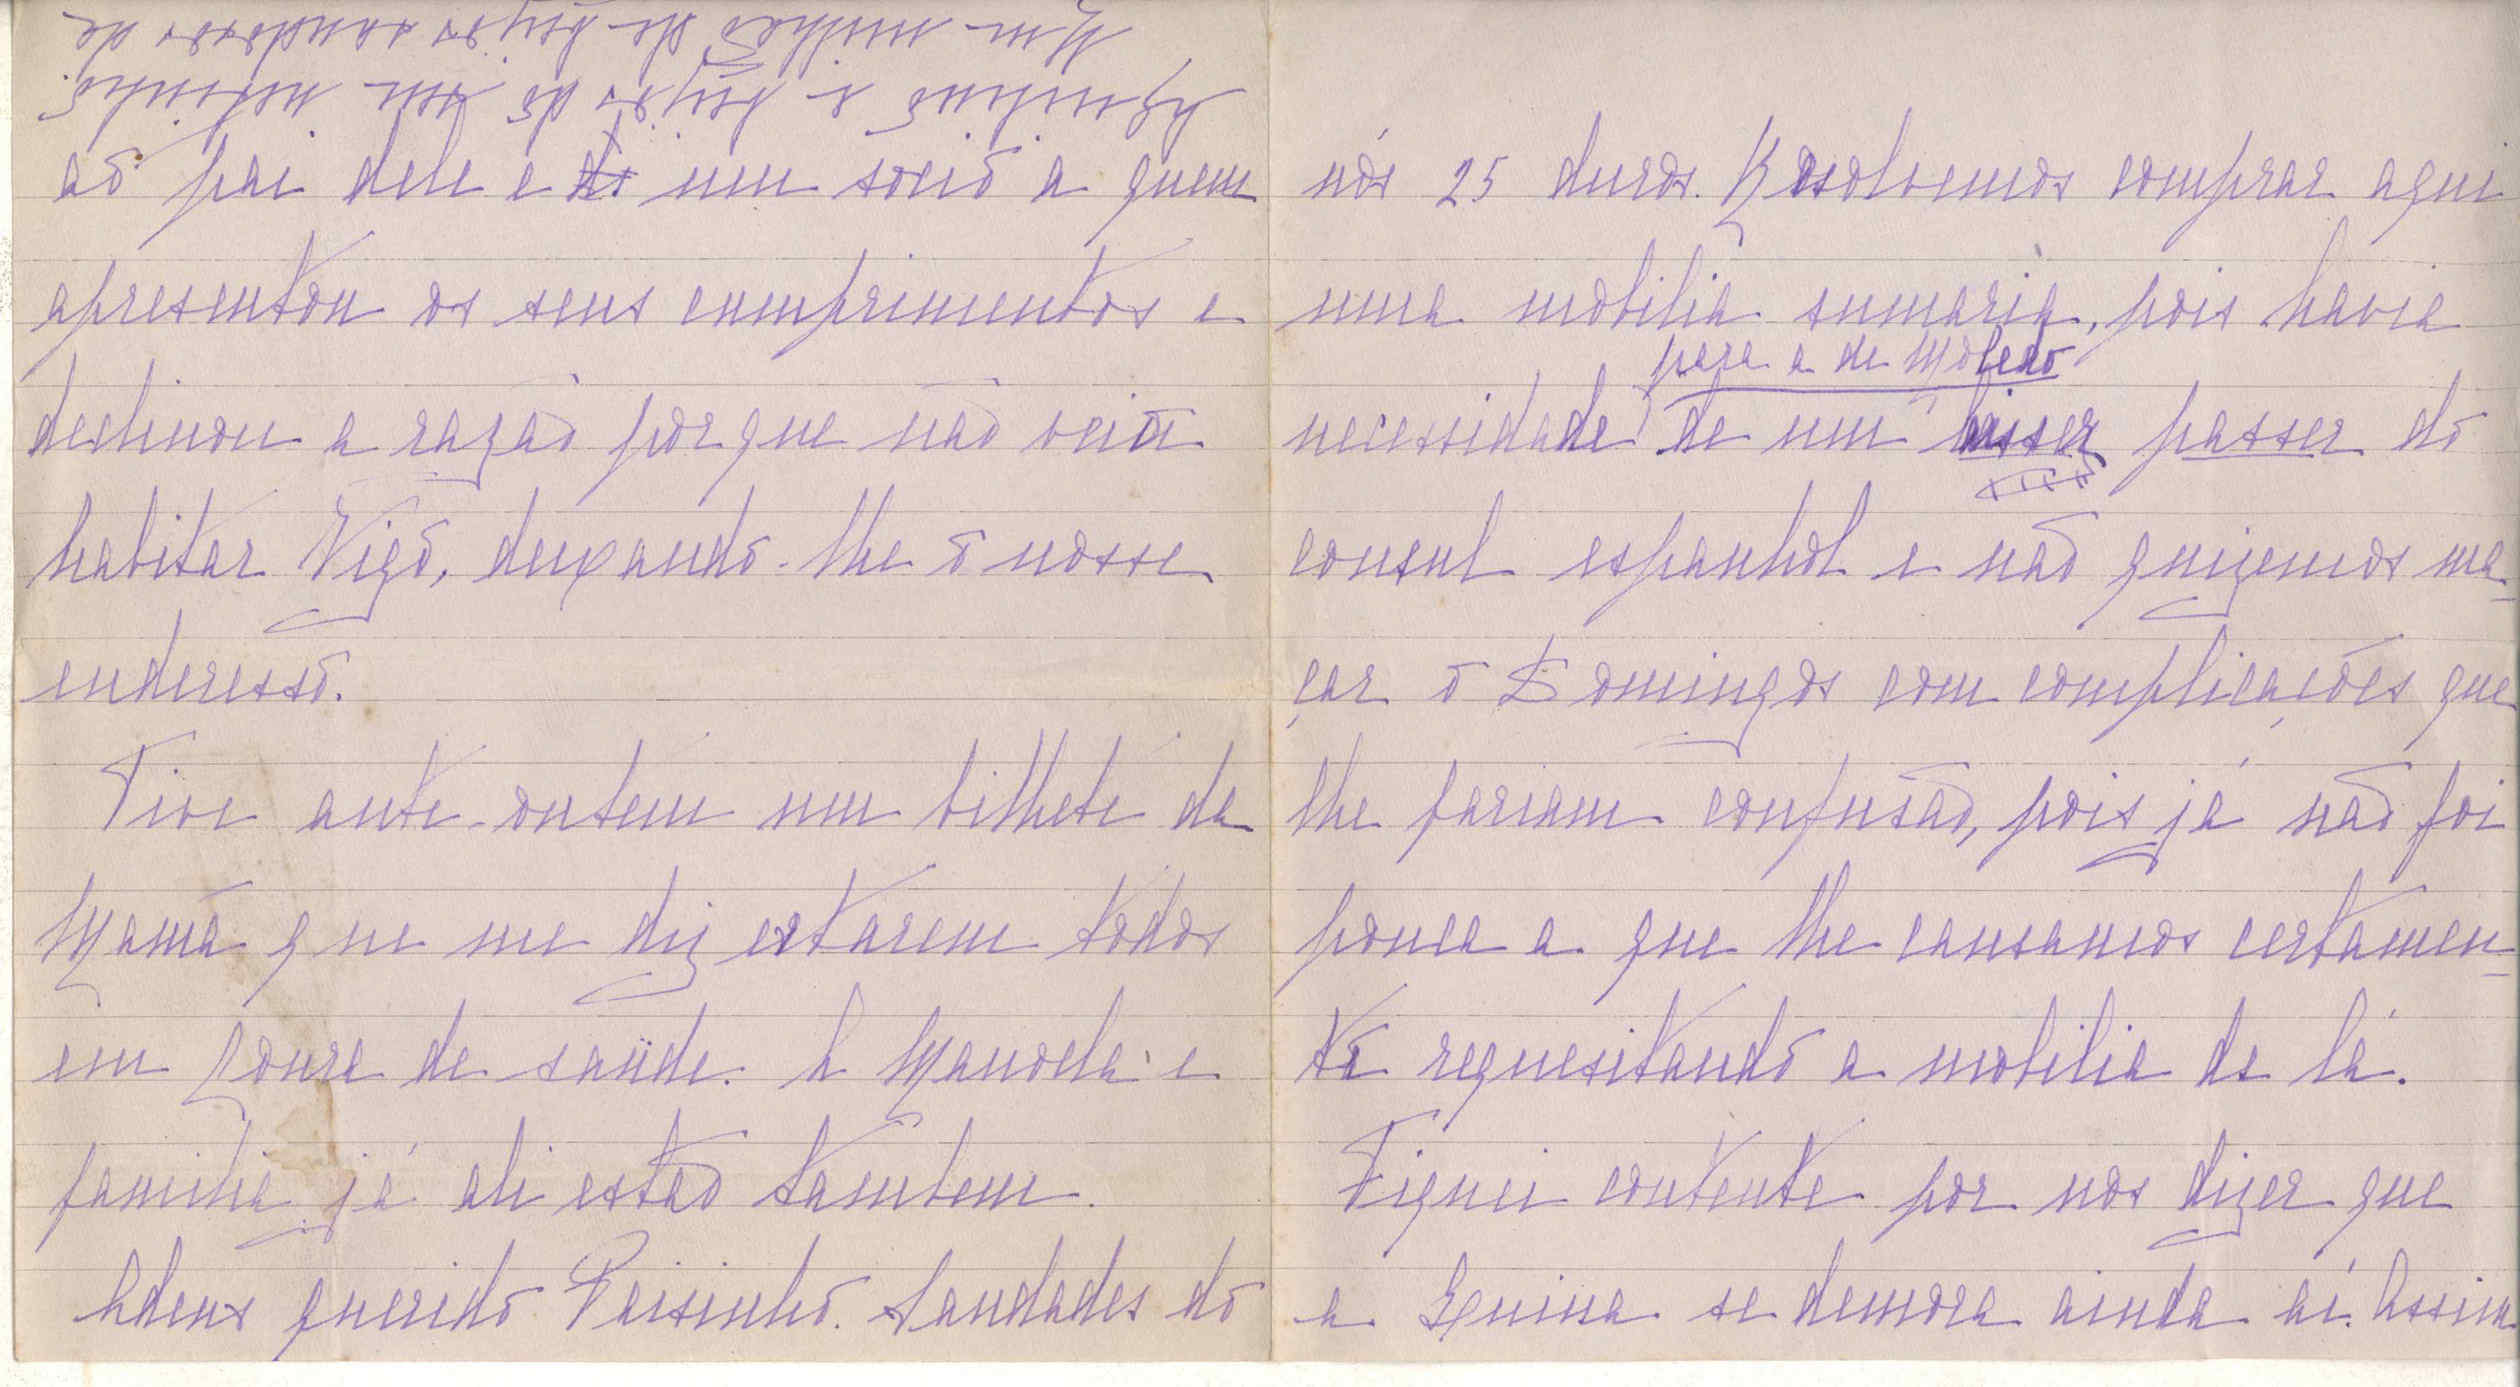 ao pai dele e um socio a quem
apresentou os seus cumprimentos e
declinou a razão porque não veiu
habitar Vigo, deixando-lhe o nosso
enderesso.
Tive ante-ontem um bilhete da
Mamã que me diz estarem todos
em goure de saüde. A Manoela e
familia já ali estão tambem.
Adeus querido Paisinho. Saudades do
Zequinho e beijos do seu netinho.
Um milhão de beijos saudosos de
nós 25 duros. Resolvemos comprar aqui
uma mobilia sumaria, pois havia
para a de Moledo
necessidade de um passer do
consul espanhol e não quizemos ma-
çar o Domingos com complicações que
lhe fariam confusão, pois já não foi
pouca a que lhe causamos certamen-
te requesitando a mobilia de lá.
Fiquei contente por nos dizer que
a se demora ainda aí. Assim